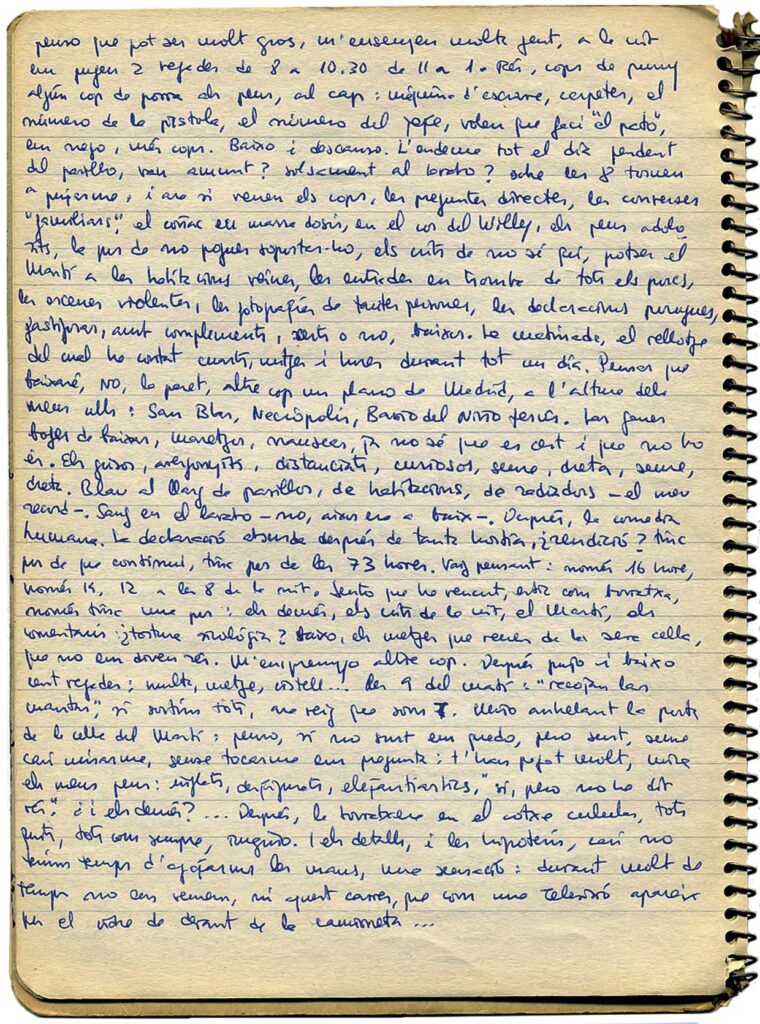 penso que pot ser molt gros, m'ensenyen molta gent, a la nit
em pugen 2 vegades de 8 a 10.30 de 11 a 1. Rés, cops de puny
algún cop de porra als peus, al cap: màquina d'escriure, carpetes, el
número de la pistola, el número del jefe, volen que faci "el pato",
em nego, més cops. Baixo i descanso. L'endemà tot el dia pendent
del pasillo, van amunt? solsament al lavabo? sobre les 8 tornen
a pujarme, i ara si venen els cops, les preguntes directes, les converses
"familiars", el coñac en massa dosis, en el cos del Willy, els peus adolo-
rits, la por de no poguer soportar-ho, els crits de no sé qui, potser el
Martí a les habitacions veïnes, les entrades en tromba de tots els
les escenes violentes, les fotografíes de tantes persones, les declaracions
amb complements, certs o no, baixar. La matinada, el rellotge
del qual he contat quarts, mitges i hores durant tot un día. Pensar que
baixaré, NO, la paret, altre cop un plano de Madrid, a l'altura dels
meus ulls: San Blas, Necrópolis, Barrio del Niño Jesús. Les ganes
boges de baixar, maretjos, nauseas, ja no sé que es cert i que no ho
és. Els grisos, avergonyits, distanciats, curiosos, seure, dreta, seure,
dreta. Blau al llarg de pasillos, de habitacions, de radiadors – el meu
record –. Sang en el lavabo – no, això era a baix –. Després, la comedia
humana. La declaració absurda després de tanta hostia, ¿rendició? tinc
por de que continui, tinc por de les 73 hores. Vaig pensant: només 16 hores,
només 14, 12 a les 8 de la nit. Sento que he vençut, estic com borratxa,
només tinc una por: els demés, els crits de la nit, el Martí, els
comentaris ¿tortura sicológica? Baixo, els metges que venen de la seva cella,
que no em diven rés. M'empremyo altre cop. Després pujo i baixo
cent vegades: multa, metge, vistell... Les 9 del matí: "recojan las
mantas", si sortim tots, ara veig que som 7. Miro anhelant la porta
de la cella del Martí: penso, si no surt em quedo, pero surt, sense
casi mirarme, sense tocarme em pregunta: t'han pegat molt, mira
els meus peus: inflats, desfigurats, elefantiastics, "si, pero no he dit
rés". ¿i els demés? ... Després, la borratxera en el cotxe celular, tots
junts, tots com sempre, ninguno. I els detalls, i les hipotesis, casi no
tenim temps d'agafarnos les mans, una sensació: durant molt de
temps no ens veurem, ni aquest carrer, que com una televisió apareix
per el vidre de devant de la camioneta ...